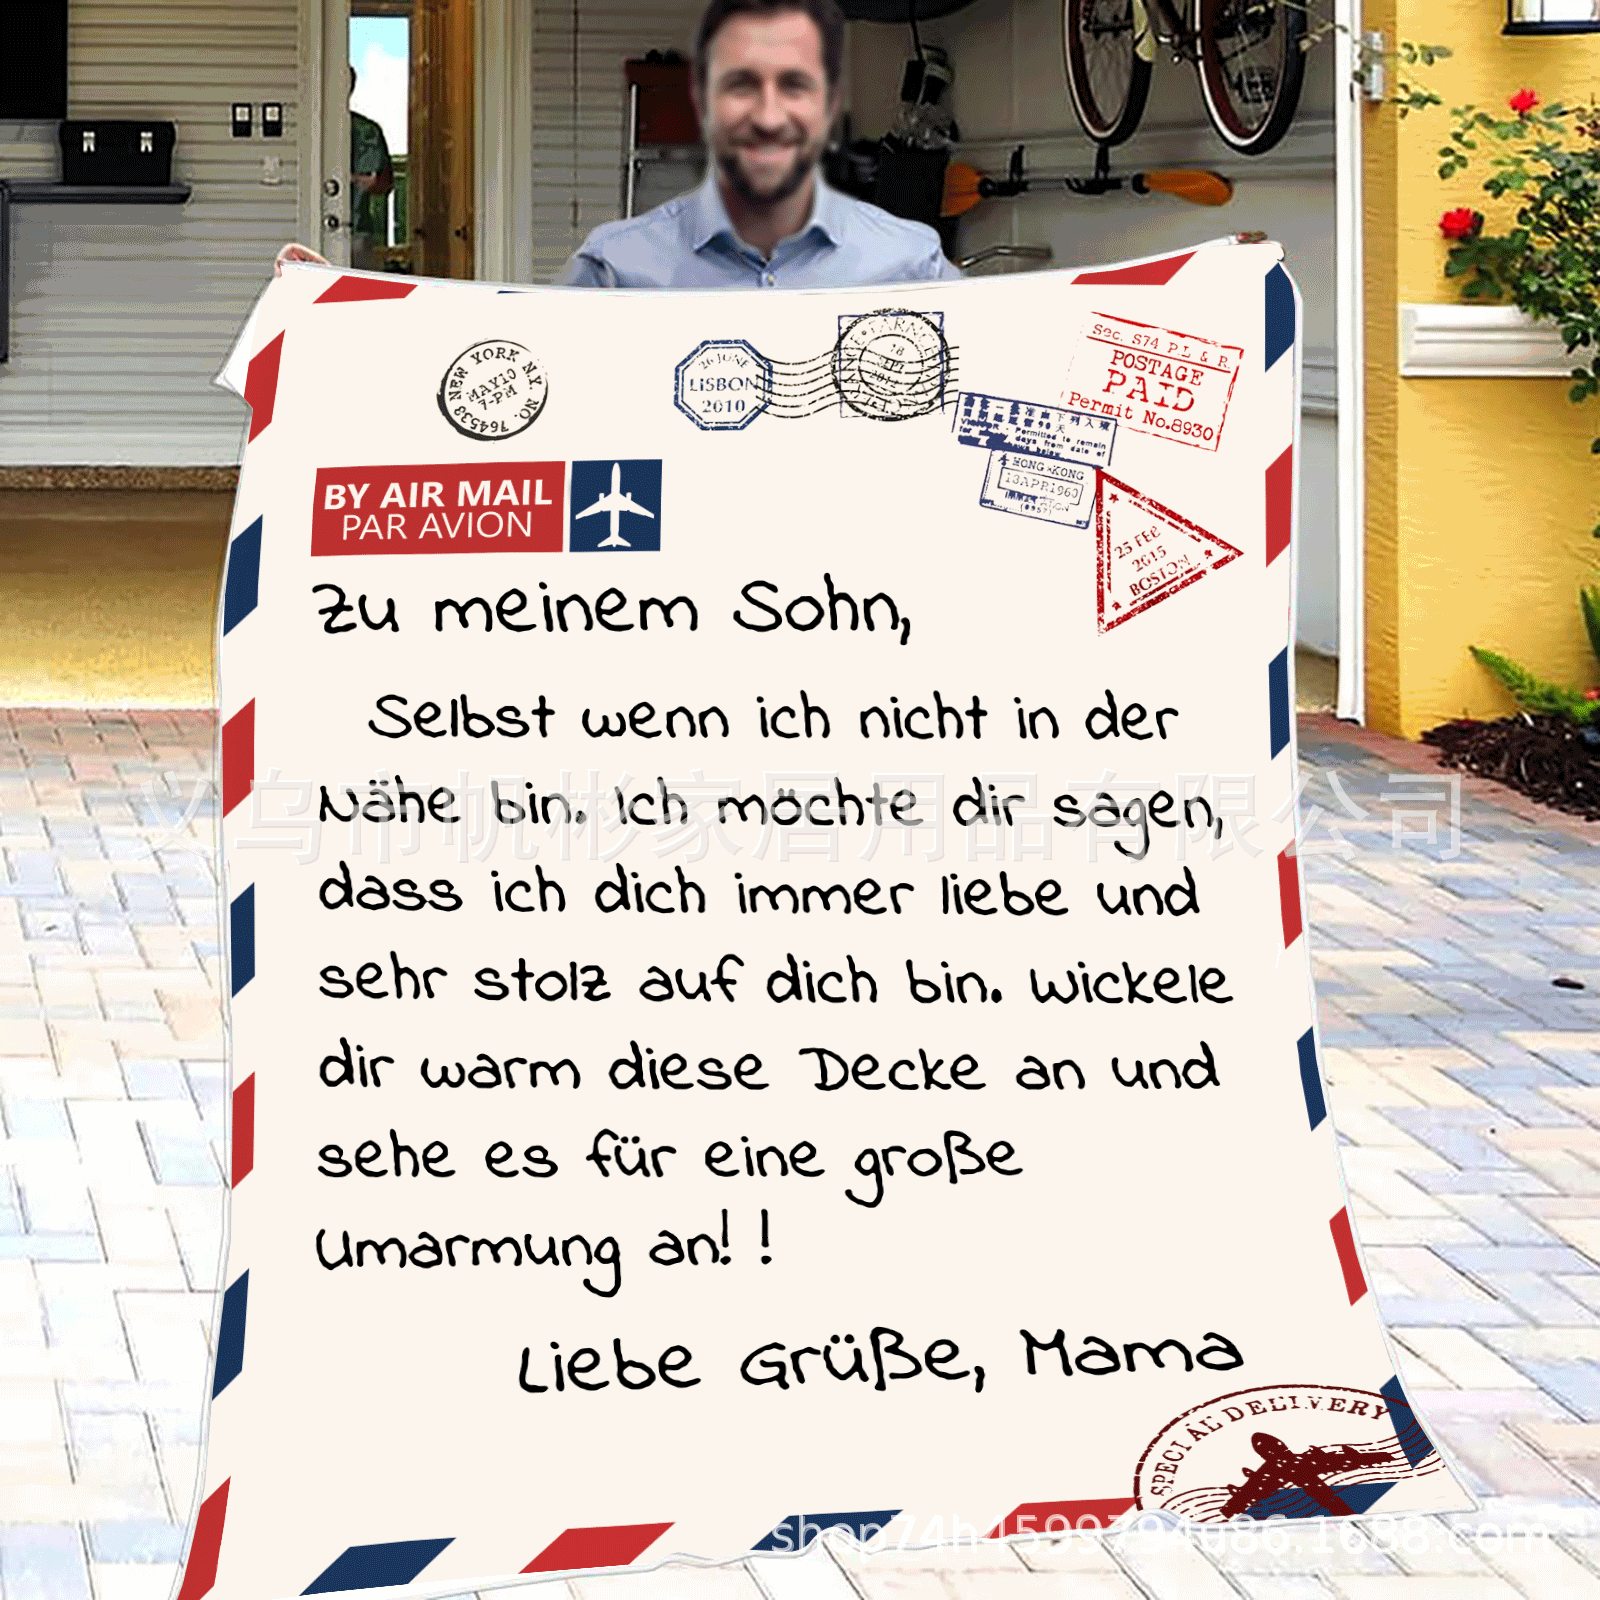 NEW YORK N.Y. NO. 764538
MAY10
7-PM
26 JUNE
LISBON
2010
Sec. S74 P.L & R.
POSTAGE
PAID
Permit No.8930
Permitted to remain
days from date of
HONG KONG
13APR1960
(0957)
25 FEB
2015
BOSTON
BY AIR MAIL
PAR AVION
Zu meinem Sohn,
Selbst wenn ich nicht in der
Nähe bin. Ich möchte dir sagen,
义乌市帆彬家居用品有限公司
dass ich dich immer liebe und
sehr stolz auf dich bin. Wickele
dir warm diese Decke an und
sehe es für eine große
Umarmung an! !
Liebe Grüße, Mama
SPECIAL DELIVERY
shop74h4599794u86.1688.com